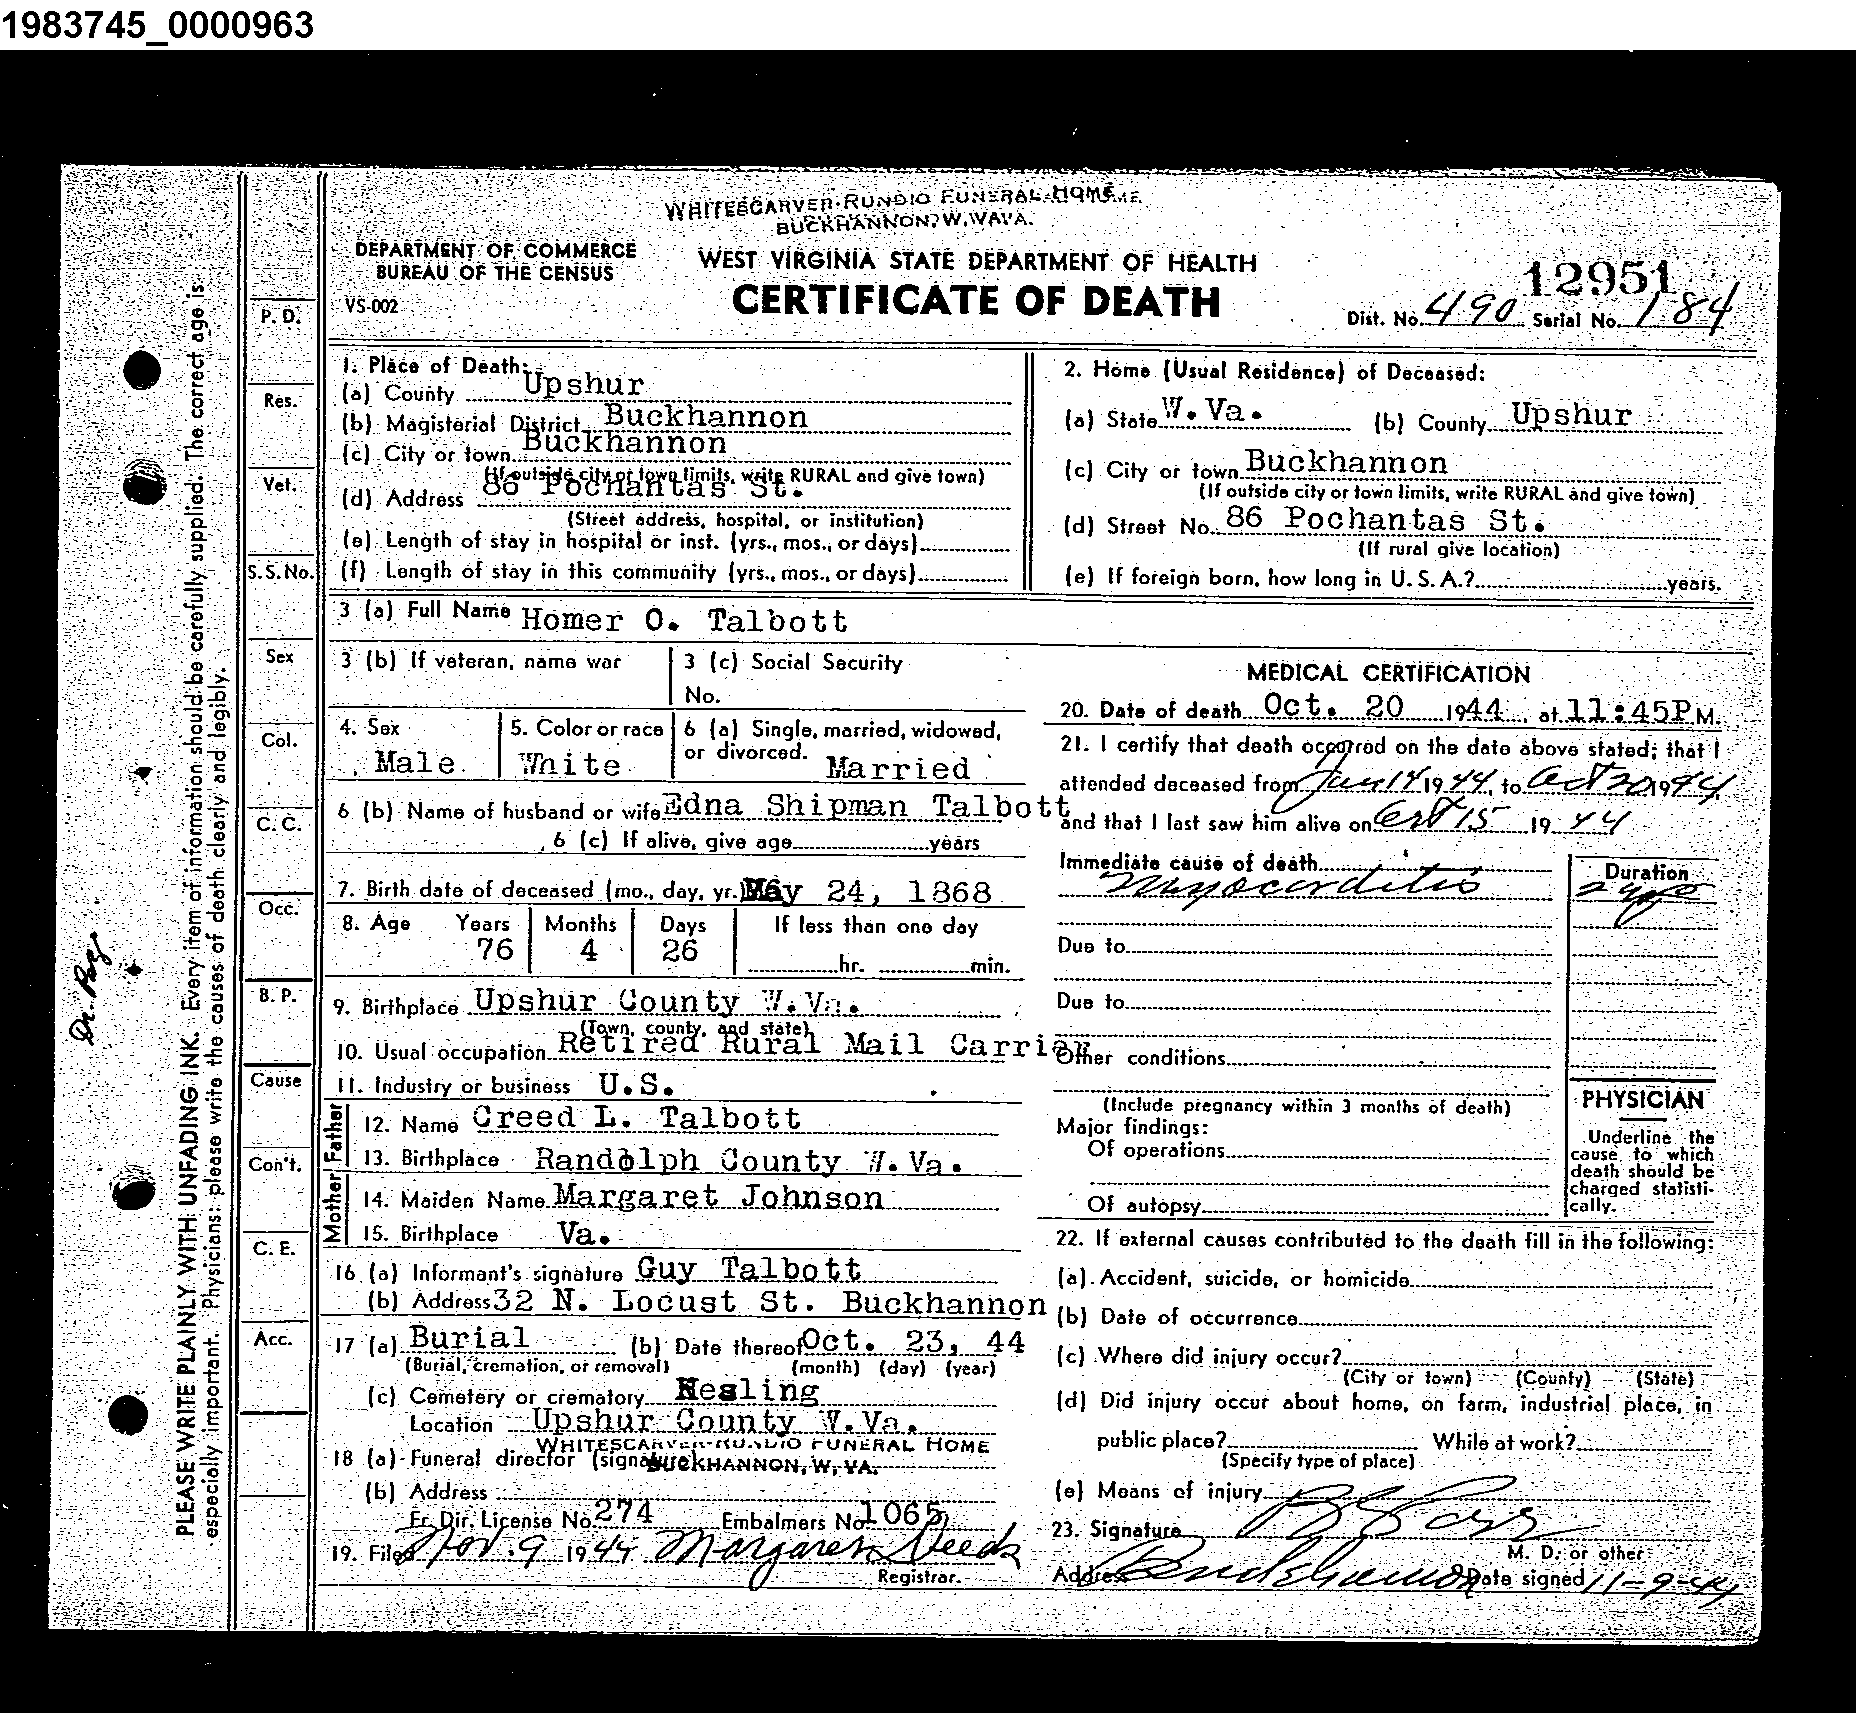 1983745_0000963
WHITESCARVER-RUNDIO FUNERAL HOME
BUCKHANNON, W. VA.
DEPARTMENT OF COMMERCE
BUREAU OF THE CENSUS
VS-002
WEST VIRGINIA STATE DEPARTMENT OF HEALTH
CERTIFICATE OF DEATH
12951
Dist. No. 490 Serial No. 184
1. Place of Death:
(a) County Upshur
(b) Magisterial District Buckhannon
(c) City or town Buckhannon
(If outside city or town limits, write RURAL and give town)
(d) Address 86 Pochantas St.
(Street address, hospital, or institution)
(e) Length of stay in hospital or inst. (yrs., mos., or days)
(f) Length of stay in this community (yrs., mos., or days)
2. Home (Usual Residence) of Deceased:
(a) State W. Va. (b) County Upshur
(c) City or town Buckhannon
(If outside city or town limits, write RURAL and give town)
(d) Street No. 86 Pochantas St.
(If rural give location)
(e) If foreign born, how long in U. S. A.? years.
3 (a) Full Name Homer O. Talbott
3 (b) If veteran, name war
3 (c) Social Security
No.
4. Sex
Male
5. Color or race
White
6 (a) Single, married, widowed,
or divorced. Married
6 (b) Name of husband or wife Edna Shipman Talbott
6 (c) If alive, give age years
7. Birth date of deceased (mo., day, yr.) May 24, 1868
8. Age Years Months Days If less than one day
76 4 26 hr. min.
9. Birthplace Upshur County W. Va.
(Town, county, and state)
10. Usual occupation Retired Rural Mail Carrier
11. Industry or business U.S.
Father
12. Name Creed L. Talbott
13. Birthplace Randolph County W. Va.
Mother
14. Maiden Name Margaret Johnson
15. Birthplace Va.
16 (a) Informant's signature Guy Talbott
(b) Address 32 N. Locust St. Buckhannon
17 (a) Burial (b) Date thereof Oct. 23, 44
(Burial, cremation, or removal) (month) (day) (year)
(c) Cemetery or crematory Hesling
Location Upshur County W. Va.
18 (a) Funeral director (signature) WHITESCARVER-RUNDIO FUNERAL HOME
BUCKHANNON, W. VA.
(b) Address
Fr. Dir. License No. 274 Embalmers No. 1065
19. Filed Nov. 9 1944 Margaret Deeds
Registrar.
MEDICAL CERTIFICATION
20. Date of death Oct. 20 1944, at 11:45P M.
21. I certify that death occurred on the date above stated; that I
attended deceased from Jan 14 1944, to Oct 20 1944
and that I last saw him alive on Oct 15 1944
Immediate cause of death
Myocarditis
Duration
2 yrs
Due to
Due to
Other conditions
(Include pregnancy within 3 months of death)
Major findings:
Of operations
Of autopsy
PHYSICIAN
Underline the
cause to which
death should be
charged statisti-
cally.
22. If external causes contributed to the death fill in the following:
(a) Accident, suicide, or homicide
(b) Date of occurrence
(c) Where did injury occur?
(City or town) (County) (State)
(d) Did injury occur about home, on farm, industrial place, in
public place? While at work?
(Specify type of place)
(e) Means of injury
23. Signature
M. D. or other
Address Buckhannon Date signed 11-9-44
P. D.
Res.
Vet.
S. S. No.
Sex
Col.
C. C.
Occ.
B. P.
Cause
Con't.
C. E.
Acc.
PLEASE WRITE PLAINLY WITH UNFADING INK. Every item of information should be carefully supplied. The correct age is
especially important. Physicians: please write the causes of death clearly and legibly.